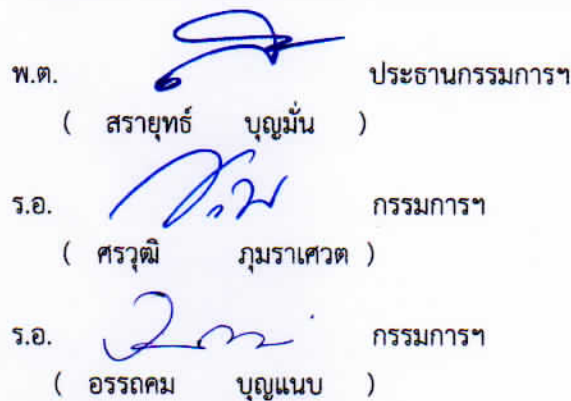 พ.ต. ประธานกรรมการฯ
( สรายุทธ์ บุญมั่น )
ร.อ. กรรมการฯ
( ศรวุฒิ ภุมราเศวต )
ร.อ. กรรมการฯ
( อรรถคม บุญแนบ )